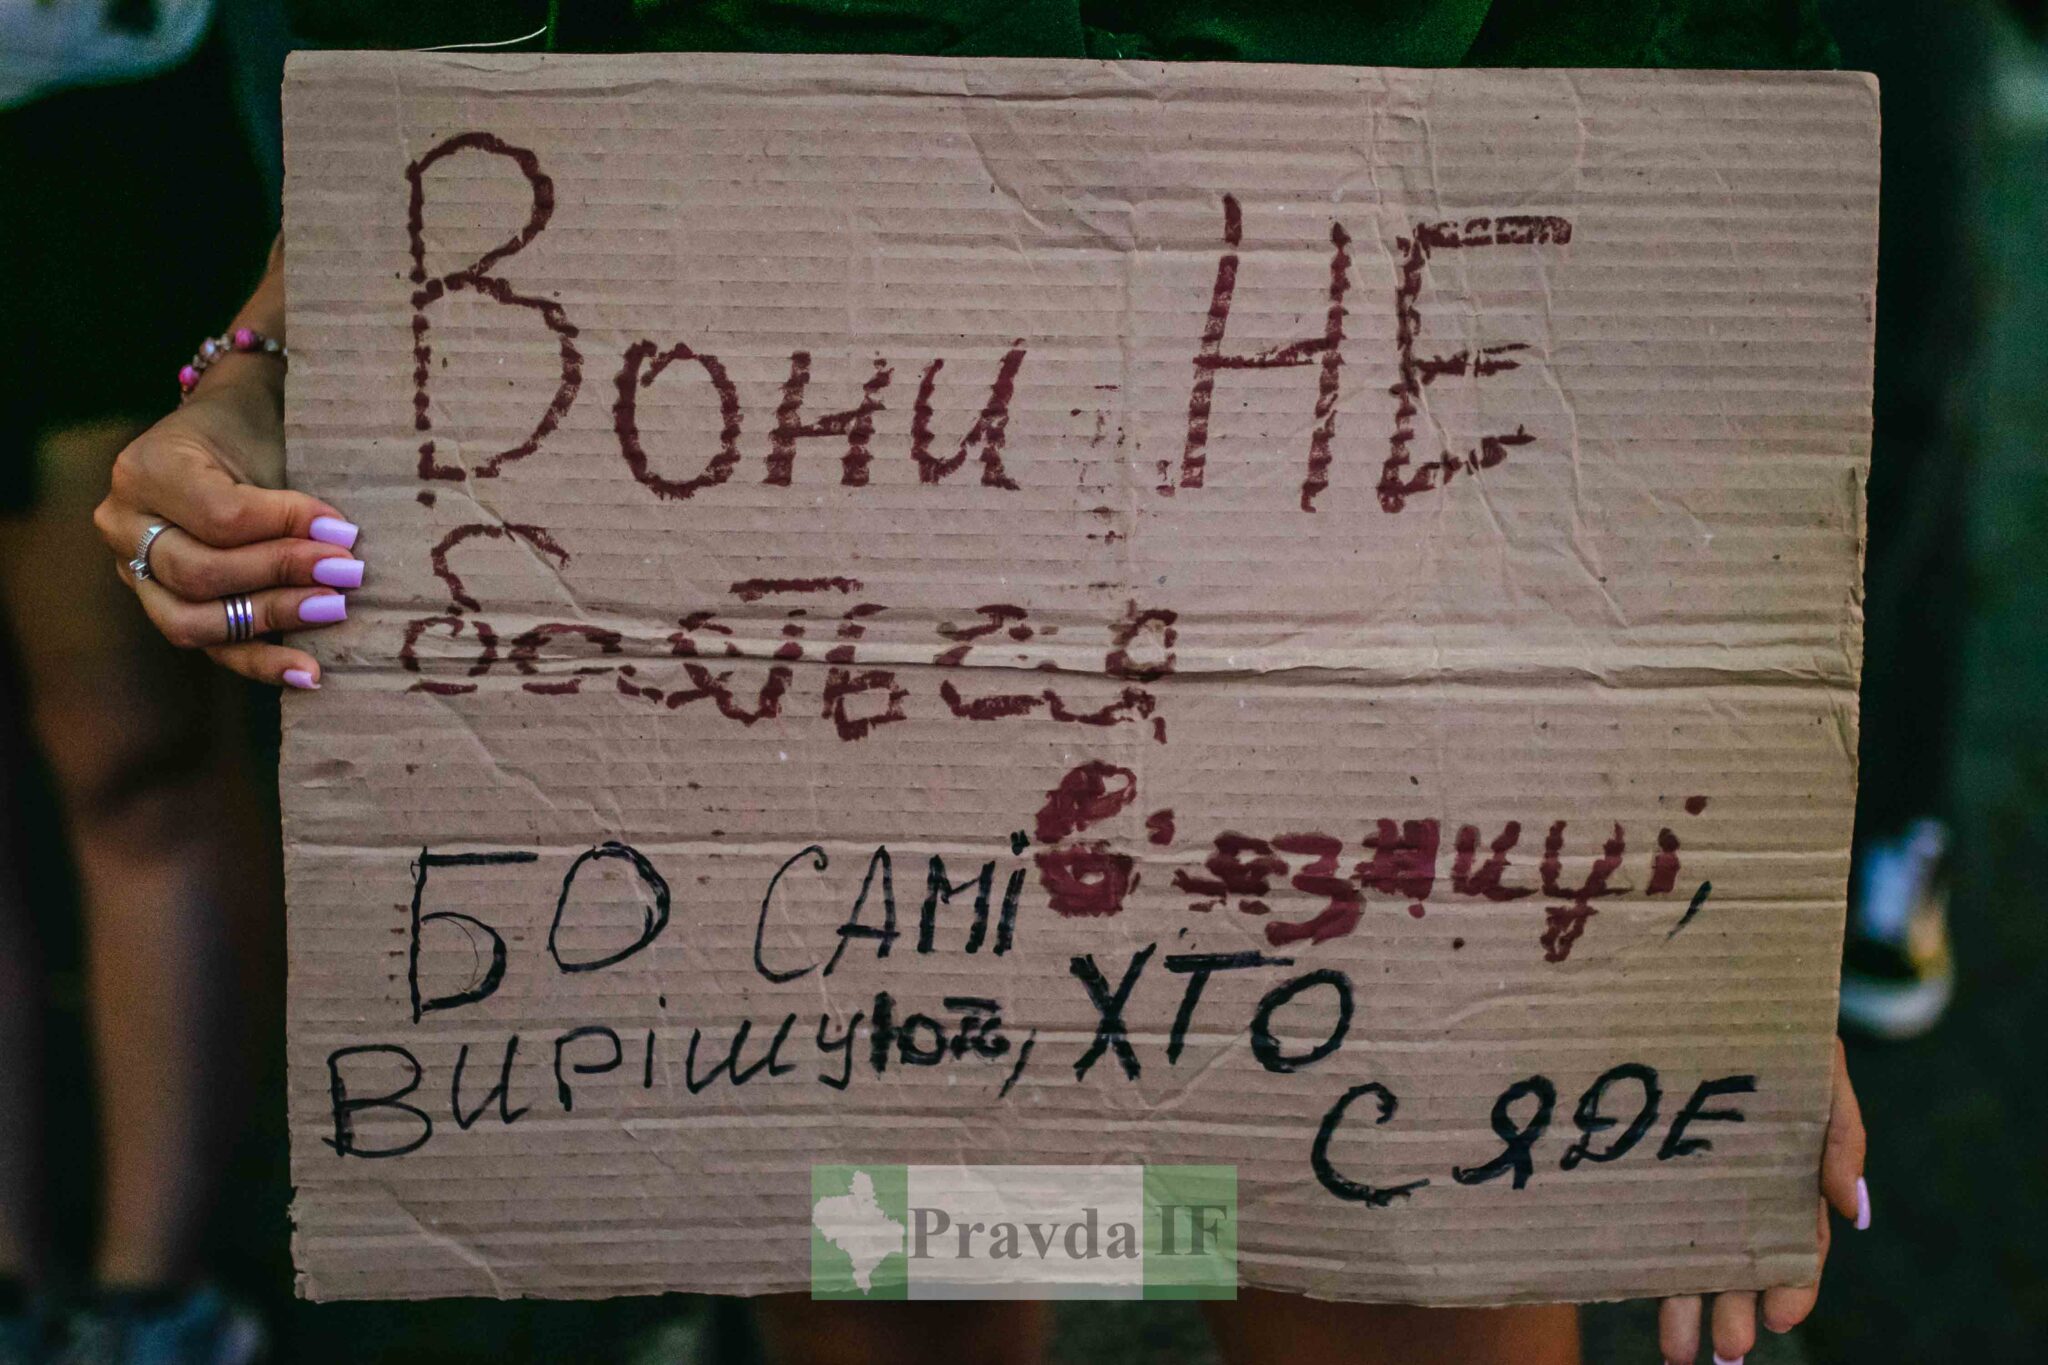 Вони НЕ
бояться
БО САМІ в'язниці,
вирішують, ХТО
СЯДЕ
Pravda IF